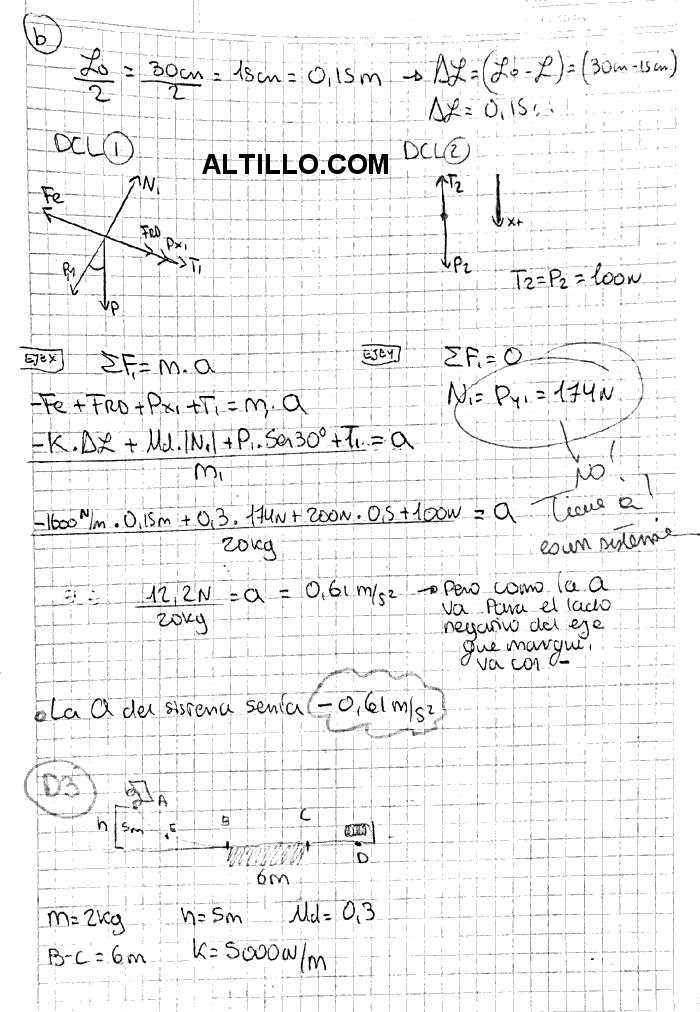 b
L0/2 = 30cm/2 = 15cm = 0,15m → ΔL = (L0 - L) = (30cm - 15cm)
ΔL = 0,15
DCL 1
ALTILLO.COM
DCL 2
N1
Fe
FRD
Px1
T1
Py
P
T2
x+
P2
T2 = P2 = 100N
EJE X
ΣF1 = m. a
EJE Y
ΣF1 = 0
-Fe + FRD + Px1 + T1 = m1. a
N1 = Py1 = 174N
-K. ΔL + Md. |N1| + P1. Sen30° + T1 = a
m1
NO!
-1600 N/m . 0,15m + 0,3 . 174N + 200N . 0,5 + 100N = a
20kg
Tiene a!
es un sistema
12,2N/20kg = a = 0,61 m/s2 → Pero como la a
va Para el lado
negativo del eje
que marqué,
va con -
La a del sistema sería -0,61 m/s2
D3
A
h
5m
E
B
C
D
6m
m = 2kg h = 5m Md = 0,3
B-C = 6m K = 5000N/m